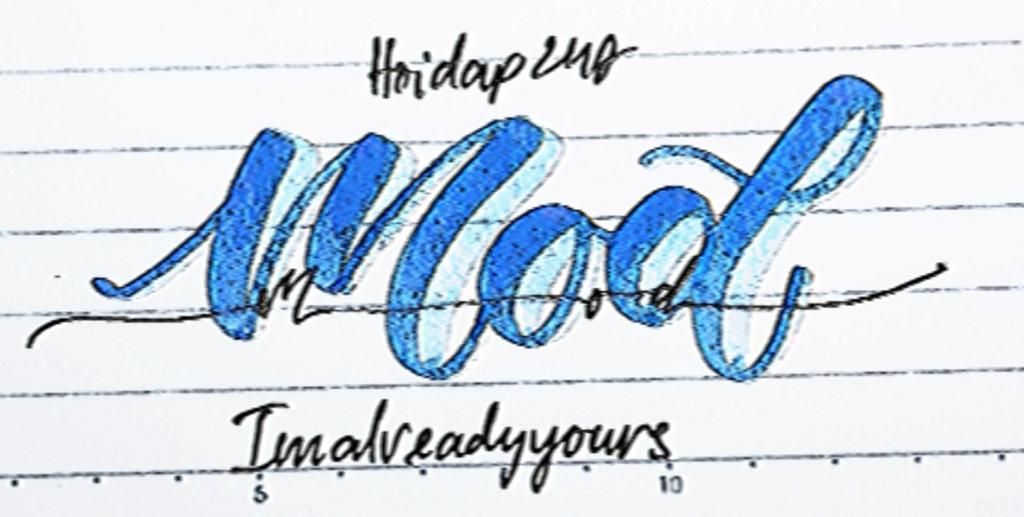 Hoidap247
Mod
mod
Imalreadyyours
5 10